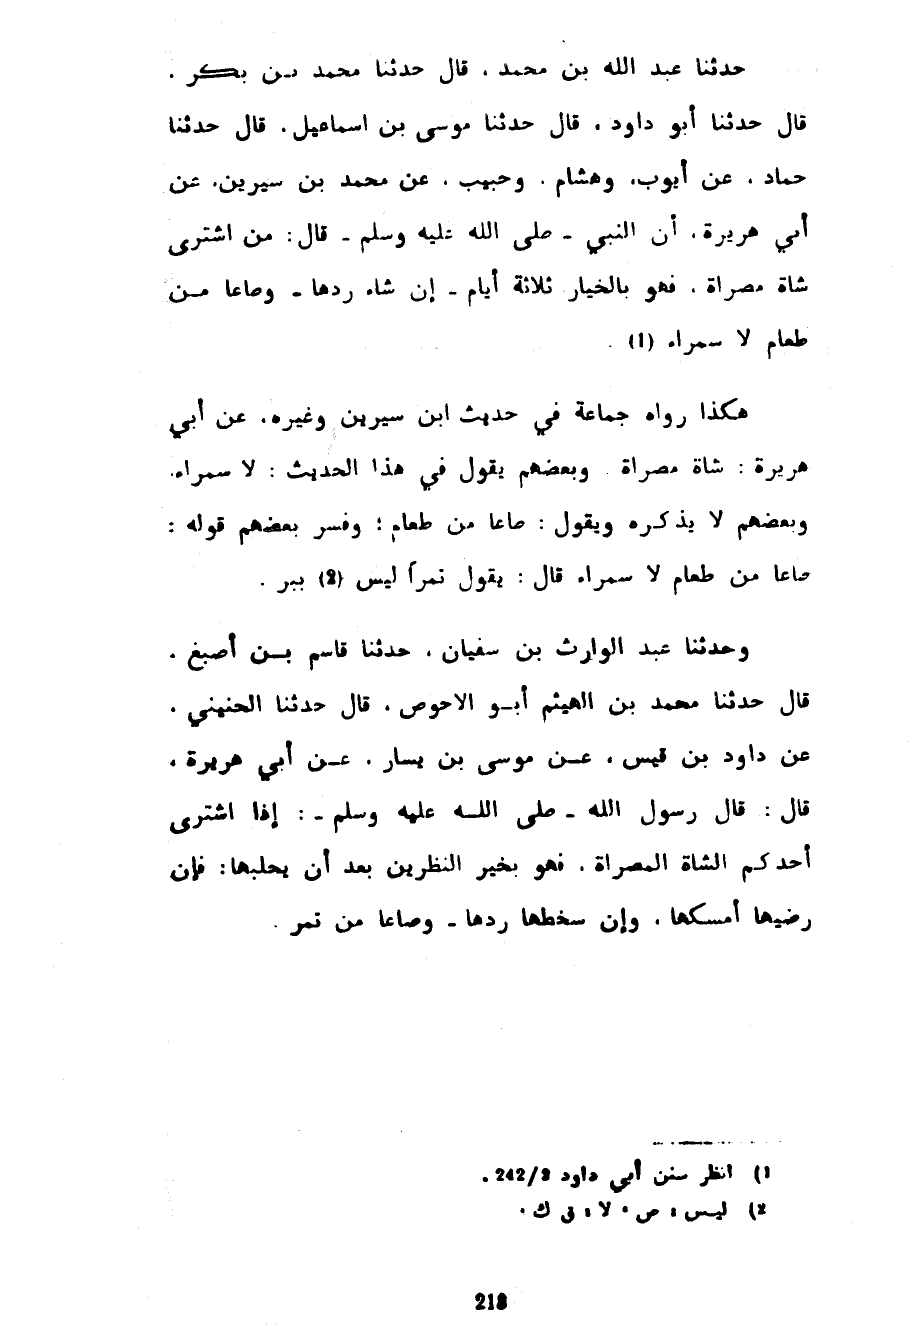 حدثنا عبد الله بن محمد ، قال حدثنا محمد بـن بكر ،
قال حدثنا أبو داود ، قال حدثنا موسى بن اسماعيل ، قال حدثنا
حماد ، عن أيوب، وهشام ، وحبيب ، عن محمد بن سيرين، عن
أبي هريرة ، أن النبي ـ صلى الله عليه وسلم ـ قال : من اشترى
شاة مصراة ، فهو بالخيار ثلاثة أيام ـ إن شاء ردها ـ وصاعا مـن
طعام لا سمراء (1) .
هكذا رواه جماعة في حديث ابن سيرين وغيره، عن أبي
هريرة : شاة مصراة . وبعضهم يقول في هذا الحديث : لا سمراء،
وبعضهم لا يذكره ويقول : صاعا من طعام ؛ وفسر بعضهم قوله :
صاعا من طعام لا سمراء قال : يقول تمرا ليس (2) ببر .
وحدثنا عبد الوارث بن سفيان ، حدثنا قاسم بـن أصبغ ،
قال حدثنا محمد بن الهيثم أبـو الاحوص ، قال حدثنا الحنيني ،
عن داود بن قيس ، عـن موسى بن يسار ، عـن أبي هريرة ،
قال : قال رسول الله ـ صلى اللـه عليه وسلم ـ : إذا اشترى
أحدكم الشاة المصراة ، فهو بخير النظرين بعد أن يحلبها : فإن
رضيها أمسكها ، وإن سخطها ردها ـ وصاعا من تمر .
1) انظر سنن أبي داود 242/2 .
2) ليس : ص ، لا : ق ك .
218